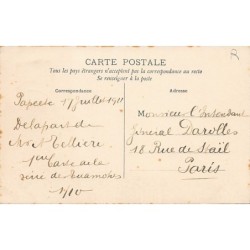 CARTE POSTALE
Tous les pays étrangers n'acceptent pas la correspondance au recto
Se renseigner à la poste
Correspondance
Adresse
Papeete 17 juillet 1911
De la part de
Mr
1ère
de la
reine de
Monsieur l'Intendant
Général Darolles
18 Rue de Staïl
Paris